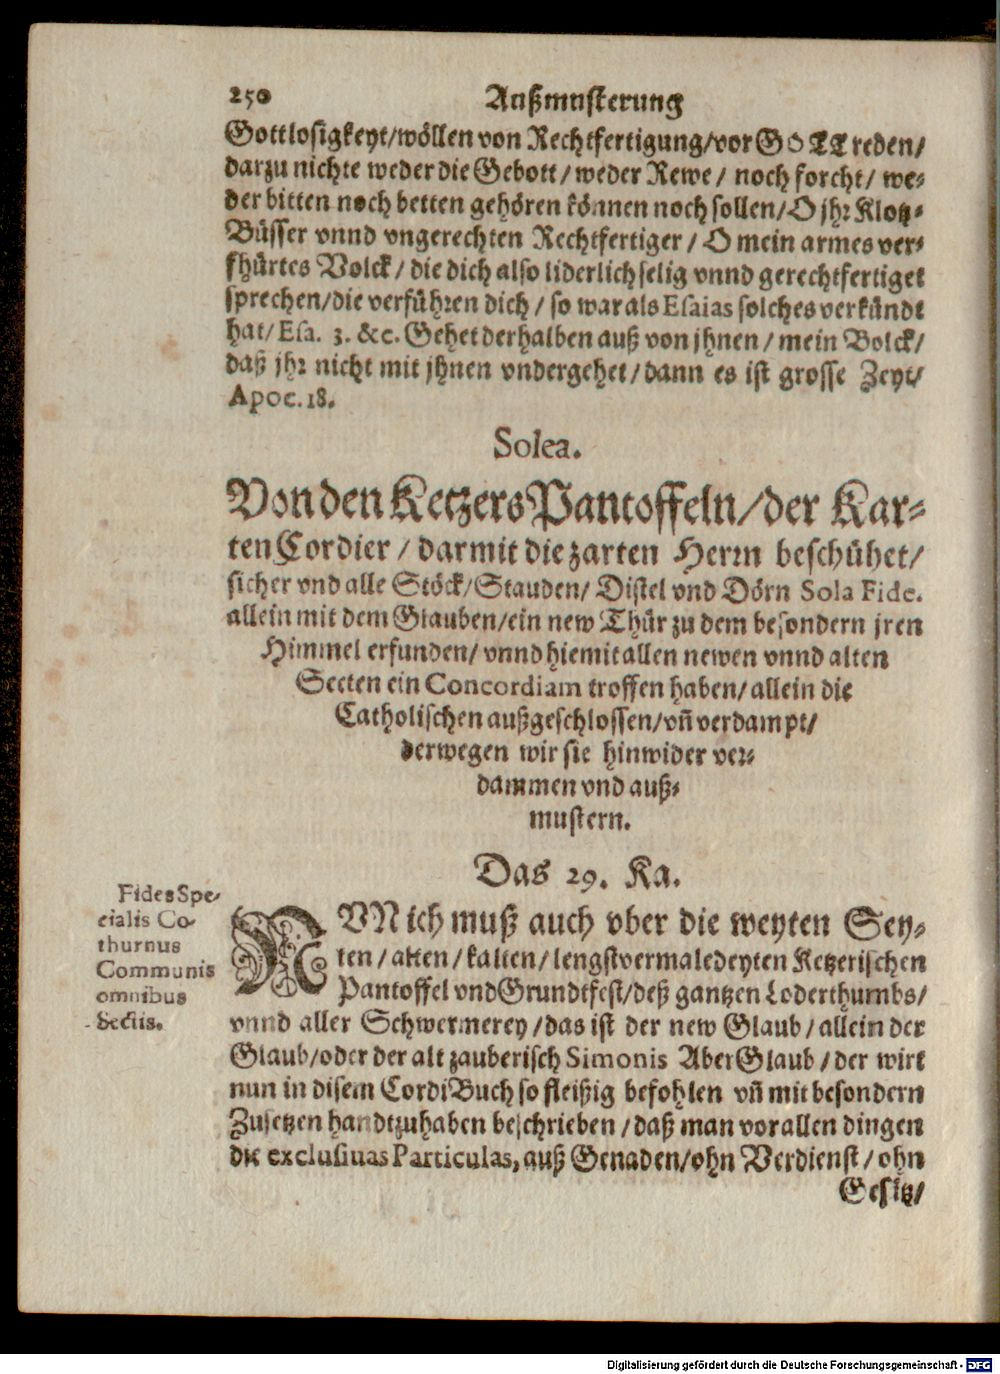 250 Außmusterung
Gottlosigkeyt/wöllen von Rechtfertigung/vor GOTT reden/
darzu nichte weder die Gebott/weder Rewe/ noch forcht/ we-
der bitten noch betten gehören können noch sollen/O jhr Klotz-
Büsser vnnd vngerechten Rechtfertiger/ O mein armes ver-
fhürtes Volck/ die dich also liderlich selig vnnd gerechtfertiget
sprechen/die verführen dich/ so war als Esaias solches verkündt
hat/Esa. 3. &c. Gehet derhalben auß von jhnen/ mein Volck/
daß jhr nicht mit jhnen vndergehet/dann es ist grosse Zeyt/
Apoc. 18.
Solea.
Von den Ketzers Pantoffeln/der Kar-
ten Cordier/ darmit die zarten Herrn beschühet/
sicher vnd alle Stöck/Stauden/ Distel vnd Dörn Sola Fide.
allein mit dem Glauben/ein new Thür zu dem besondern jren
Himmel erfunden/ vnnd hiemit allen newen vnnd alten
Secten ein Concordiam troffen haben/ allein die
Catholischen außgeschlossen/vñ verdampt/
derwegen wir sie hinwider ver-
dammen vnd auß-
mustern.
Das 29. Ka.
Fides Spe-
cialis Co-
thurnus
Communis
omnibus
Sectis.
NVN ich muß auch vber die weyten Sey-
ten/ alten/ kalten/ lengst vermaledeyten Ketzerischen
Pantoffel vnd Grundtfest/deß gantzen Loderthumbs/
vnnd aller Schwermerey/das ist der new Glaub/allein der
Glaub/oder der alt zauberisch Simonis AberGlaub/der wirt
nun in disem CordiBuch so fleißig befohlen vñ mit besondern
Zusetzen handtzuhaben beschrieben/daß man vor allen dingen
die exclusiuas Particulas, auß Genaden/ohn Verdienst/ohn
Gesetz/
Digitalisierung gefördert durch die Deutsche Forschungsgemeinschaft - DFG